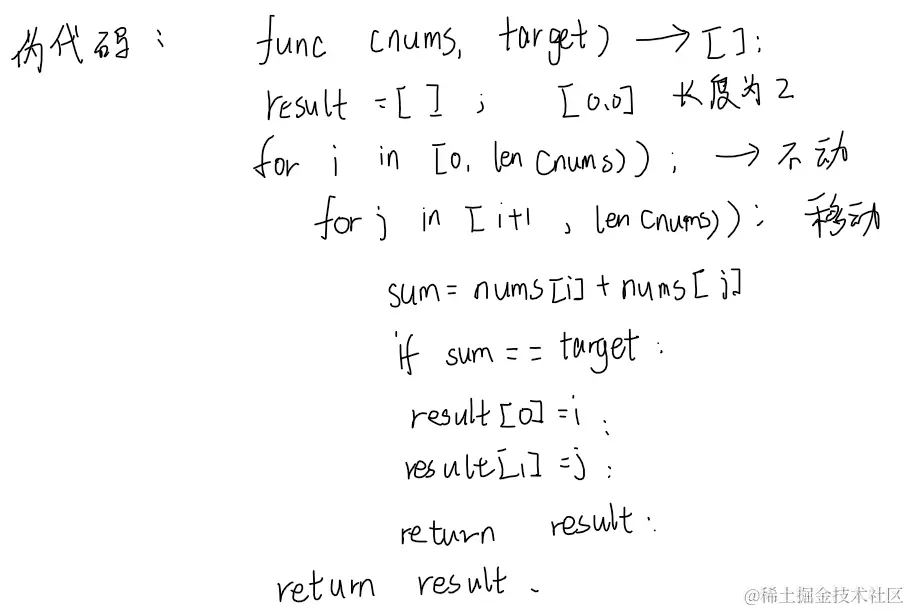 伪代码： func (nums, target) → []:
result = [ ] ; [0,0] 长度为2
for i in [0, len(nums)) ; → 不动
for j in [i+1 , len(nums)) : 移动
sum = nums[i] + nums[j]
if sum == target :
result[0] = i ;
result[1] = j ;
return result :
return result .
@稀土掘金技术社区